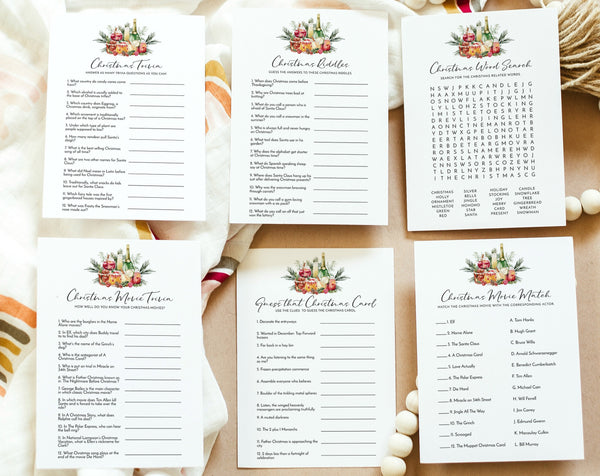 Christmas Trivia
ANSWER AS MANY TRIVIA QUESTIONS AS YOU CAN!
1. What country do candy canes come from?
2. Which alcohol is usually added to Christmas trifles?
3. Which country does Eggnog, a Christmas drink, originate from?
4. Which ornament is traditionally placed on the top of a Christmas tree?
5. Under which type of plant are people supposed to kiss?
6. How many reindeer pull Santa's sleigh?
7. What is the best selling Christmas song of all time?
8. What are two other names for Santa Claus?
9. What did Mikel Jones in Lotter before being used for Christmas?
10. Traditionally, what snacks do kids leave out for Santa Claus?
11. Which fairy tale was the first gingerbread houses inspired by?
12. What was Frosty the Snowman's nose made out of?
Christmas Riddles
GUESS THE ANSWERS TO THESE CHRISTMAS RIDDLES
1. When does Christmas come before Thanksgiving?
2. Why are Christmas trees bad at knitting?
3. What do you call a person who is afraid of Santa Claus?
4. What do you call a snowman in the summer?
5. Who is always full and never hungry on Christmas?
6. What test does Santa use in his garden?
7. Why does the alphabet get shorter at Christmas time?
8. What do Spanish speaking sheep say at Christmas time?
9. Where does Santa Claus hang up his hat after delivering Christmas presents?
10. Why was the snowman browsing through carrots?
11. What do you call a gym-loving snowman with a six pack?
12. What do you call an elf that just won the lottery?
Christmas Word Search
SEARCH FOR THE CHRISTMAS RELATED WORDS
CHRISTMAS
HOLLY
ORNAMENT
MISTLETOE
GREEN
SILVER
BELLS
JINGLE
HOHOHO
STAR
RED
HOLIDAY
STOCKING
JOY
MERRY
SANTA
CARD
CANDLE
SNOWFLAKE
TREE
GINGERBREAD
WREATH
PRESENT
SNOWMAN
Christmas Movie Trivia
HOW WELL DO YOU KNOW YOUR CHRISTMAS MOVIES?
1. Who are the burglars in the Home Alone movies?
2. In Elf, which city does Buddy travel to to find his dad?
3. What's the name of the Grinch's dog?
4. Who is the antagonist of A Christmas Carol?
5. Who is put on trial in Miracle on 34th Street?
6. What is Father Christmas known as in The Nightmare Before Christmas?
7. George Bailey is the main character in which classic Christmas movie?
8. In which movie does Tim Allen kill Santa and is forced to take over the role?
9. In A Christmas Story, what does Ralphie call his dad?
10. In The Polar Express, who can hear the bell ring?
11. In National Lampoon's Christmas Vacation, what is Ellen's nickname for Clark?
12. What Christmas song plays at the end of the movie Die Hard?
Guess that Christmas Carol
USE THE CLUES TO GUESS THE CHRISTMAS CAROL
1. Decorate the entryways
2. Wanted in December: Top Forward hooves
3. Far back in a hay bin
4. Are you listening to the same thing as me?
5. Frozen precipitation commence
6. Assemble everyone who believes
7. Boulder of the tinkling metal spheres
8. Listen, the winged heavenly messengers are proclaiming truthfully
9. A rusted darkness
10. The 2 plus 1 Monarchs
11. Father Christmas is approaching the city
12. 2 days less than a fortnight of celebration
Christmas Movie Match
MATCH THE CHRISTMAS MOVIE WITH THE CORRESPONDING ACTOR
1. Elf
2. Home Alone
3. The Santa Clause
4. A Christmas Carol
5. Love Actually
6. The Polar Express
7. Die Hard
8. Miracle on 34th Street
9. Jingle All The Way
10. The Grinch
11. Scrooged
12. The Muppet Christmas Carol
A. Tom Hanks
B. Hugh Grant
C. Bruce Willis
D. Arnold Schwarzenegger
E. Benedict Cumberbatch
F. Tim Allen
G. Michael Cain
H. Will Ferrell
I. Jim Carrey
J. Edmund Gwenn
K. Macaulay Culkin
L. Bill Murray